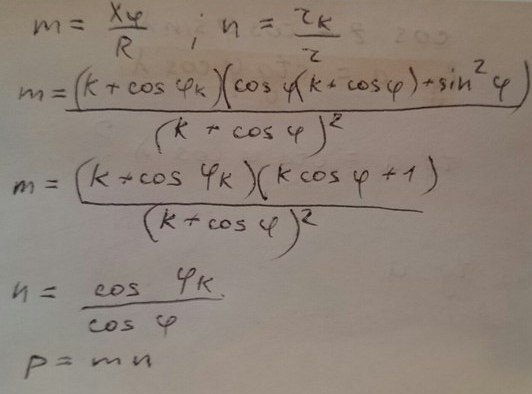 m = xφ/R ; n = τк/τ
m = (к + cos φк)(cos φ(к + cos φ) + sin² φ)/(к + cos φ)²
m = (к + cos φк)(к cos φ + 1)/(к + cos φ)²
n = cos φк/cos φ
p = mn